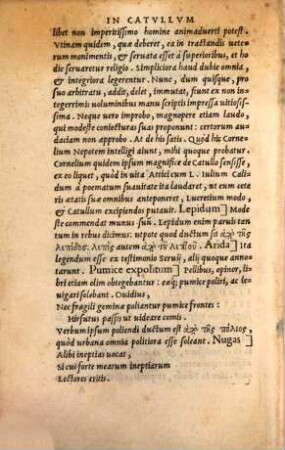 IN CATVLLVM
libet non imperitissimo homine animaduerti potest.
Vtinam quidem, quæ deberet, ea in tractandis vete-
rum monimentis, & seruata esset à superioribus, et ho
die seruaretur religio. Simpliciora haud dubie omnia,
& integriora legerentur. Nunc, dum quisque, pro
suo arbitratu, addit, delet, immutat, fiunt ex non in
tegerrimis voluminibus manu scriptis impressa vitiosis-
sima. Neque vero improbo, magnopere etiam laudo,
qui modeste coniecturas suas proponunt: certorum au-
daciam non approbo. At de his satis. Quòd hic Corne-
lium Nepotem intelligi aiunt, mihi quoque probatur.
Cornelium quidem ipsum magnifice de Catullo sensisse,
ex eo liquet, quòd in vita Attici cum L. Iulium Calidu
um à poematum suauitate ita laudaret, vt eum cete
ris ætatis suæ omnibus anteponeret, Lucretium modo,
& Catullum excipiendos putauit. Lepidum] Mode
ste commendat munus suũ. Lepidum enim paruis tan
tum in rebus dicimus: utpote quod ductum sit ἀπὸ τῆς
λεπίδος. λεπὶς autem ἀπὸ τῦ λεπτοῦ. Arida] Ita
legendum esse ex testimonio Seruij, alij quoque annota-
runt. Pumice expolitum] Pellibus, opinor, li-
bri etiam olim obtegebantur: eæq; pumice poliri, ac le-
uigari solebant. Ouidius,
Nec fragili geminæ poliantur pumice frontes:
Hirsutus passis ut videare comis.
Verbum ipsum poliendi ductum est ἀπὸ τῆς πόλεως,
quòd urbana omnia politiora esse soleant. Nugas]
Alibi ineptias uocat,
Si cui forte mearum ineptiarum
Lectores eritis.